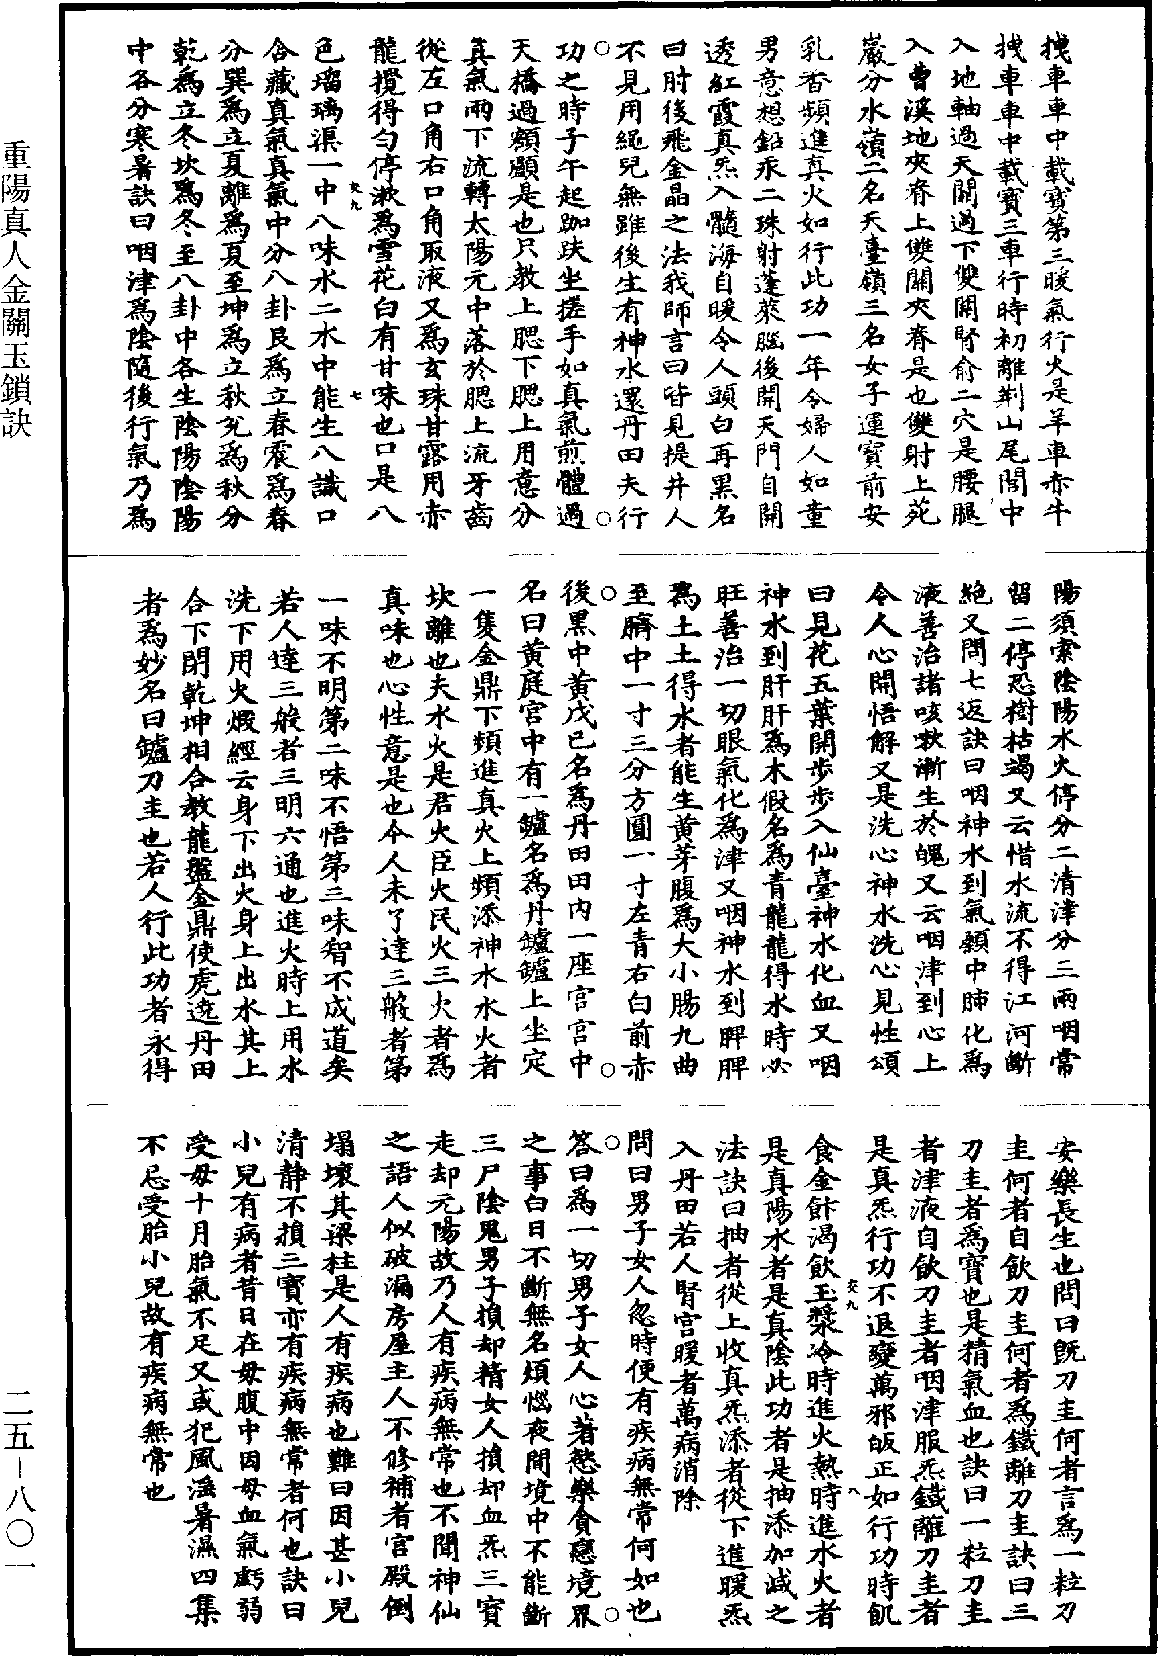 拽車車中載寶第三暖氣行火是羊車赤牛
拽車車中載寶三車行時初離荆山尾閭中
入地軸過天關過下雙關腎俞二穴是腰腿
入曹溪地夾脊上雙關夾脊是也雙射上苑
巖分水嶺二名天臺嶺三名女子運寶前安
乳香頻進真火如行此功一年令婦人如童
男意想鉛汞二珠射蓬萊腦後開天門自開
透紅霞真炁入髓海自暖令人頭白再黑名
曰肘後飛金晶之法我師言曰皆見提井人
不見用繩兒無雖後生有神水還丹田夫行
○功之時子午起跏趺坐搓手如真氣煎體過○
天橋過額顱是也只教上腮下腮上用意分
真氣兩下流轉太陽元中落於腮上流牙齒
從左口角右口角取液又為玄珠甘露用赤
龍攪得勻停漱為雪花白有甘味也口是八
色瑠璃渠一中八味水二水中能生八識口
含藏真氣真氣中分八卦艮為立春震為春
分巽為立夏離為夏至坤為立秋兌為秋分
乾為立冬坎為冬至八卦中各生陰陽陰陽
中各分寒暑訣曰咽津為陰隨後行氣乃為
陽須索陰陽水火停分二清津分二兩咽常
留二停恐樹枯竭又云惜水流不得江河斷
絕又問七返訣曰咽神水到氣顙中肺化為
液善治諸咳嗽漸生於魄又云咽津到心上
令人心開悟解又是洗心神水洗心見性頌
曰見花五葉開步步入仙臺神水化血又咽
神水到肝肝為木假名為青龍龍得水時必
旺善治一切眼氣化為津又咽神水到脾脾
為土土得水者能生黃芽腹為大小腸九曲
至臍中一寸三分方圓一寸左青右白前赤
○後黑中黃戊己名為丹田田內一座宮宮中○
名曰黃庭宮中有一鑪名為丹鑪鑪上坐定
一隻金鼎下頻進真火上頻添神水水火者
坎離也夫水火是君火臣火民火三火者為
真味也心性意是也今人未了達三般者第
一味不明第二味不悟第三味智不成道矣
若人達三般者三明六通也進火時上用水
洗下用火煆經云身下出火身上出水其上
合下閉乾坤相合教龍盤金鼎使虎遶丹田
者為妙名曰鑪刀圭也若人行此功者永得
安樂長生也問曰既刀圭何者言為一粒刀
圭何者自飲刀圭何者為鐵離刀圭訣曰三
刀圭者為寶也是精氣血也訣曰一粒刀圭
者津液自飲刀圭者咽津服炁鐵離刀圭者
是真炁行功不退變萬邪皈正如行功時飢
食金餅渴飲玉漿冷時進火熱時進水火者
是真陽水者是真陰此功者是抽添加減之
法訣曰抽者從上收真炁添者從下進暖炁
入丹田若人腎宮暖者萬病消除
問曰男子女人忽時便有疾病無常何如也
○答曰為一切男子女人心著愁樂貪戀境界○
之事白日不斷無名煩惱夜間境中不能斷
三尸陰鬼男子損却精女人損却血炁三寶
走却元陽故乃人有疾病無常也不聞神仙
之語人似破漏房屋主人不修補者官殿倒
塌壞其梁柱是人有疾病也難曰因甚小兒
清静不損三寶亦有疾病無常者何也訣曰
小兒有病者昔日在母腹中因母血氣虧弱
受母十月胎氣不足又或犯風溫暑濕四集
不忌受胎小兒故有疾病無常也
交九
七
交九
八
重陽真人金關玉鎖訣
二五－八〇一